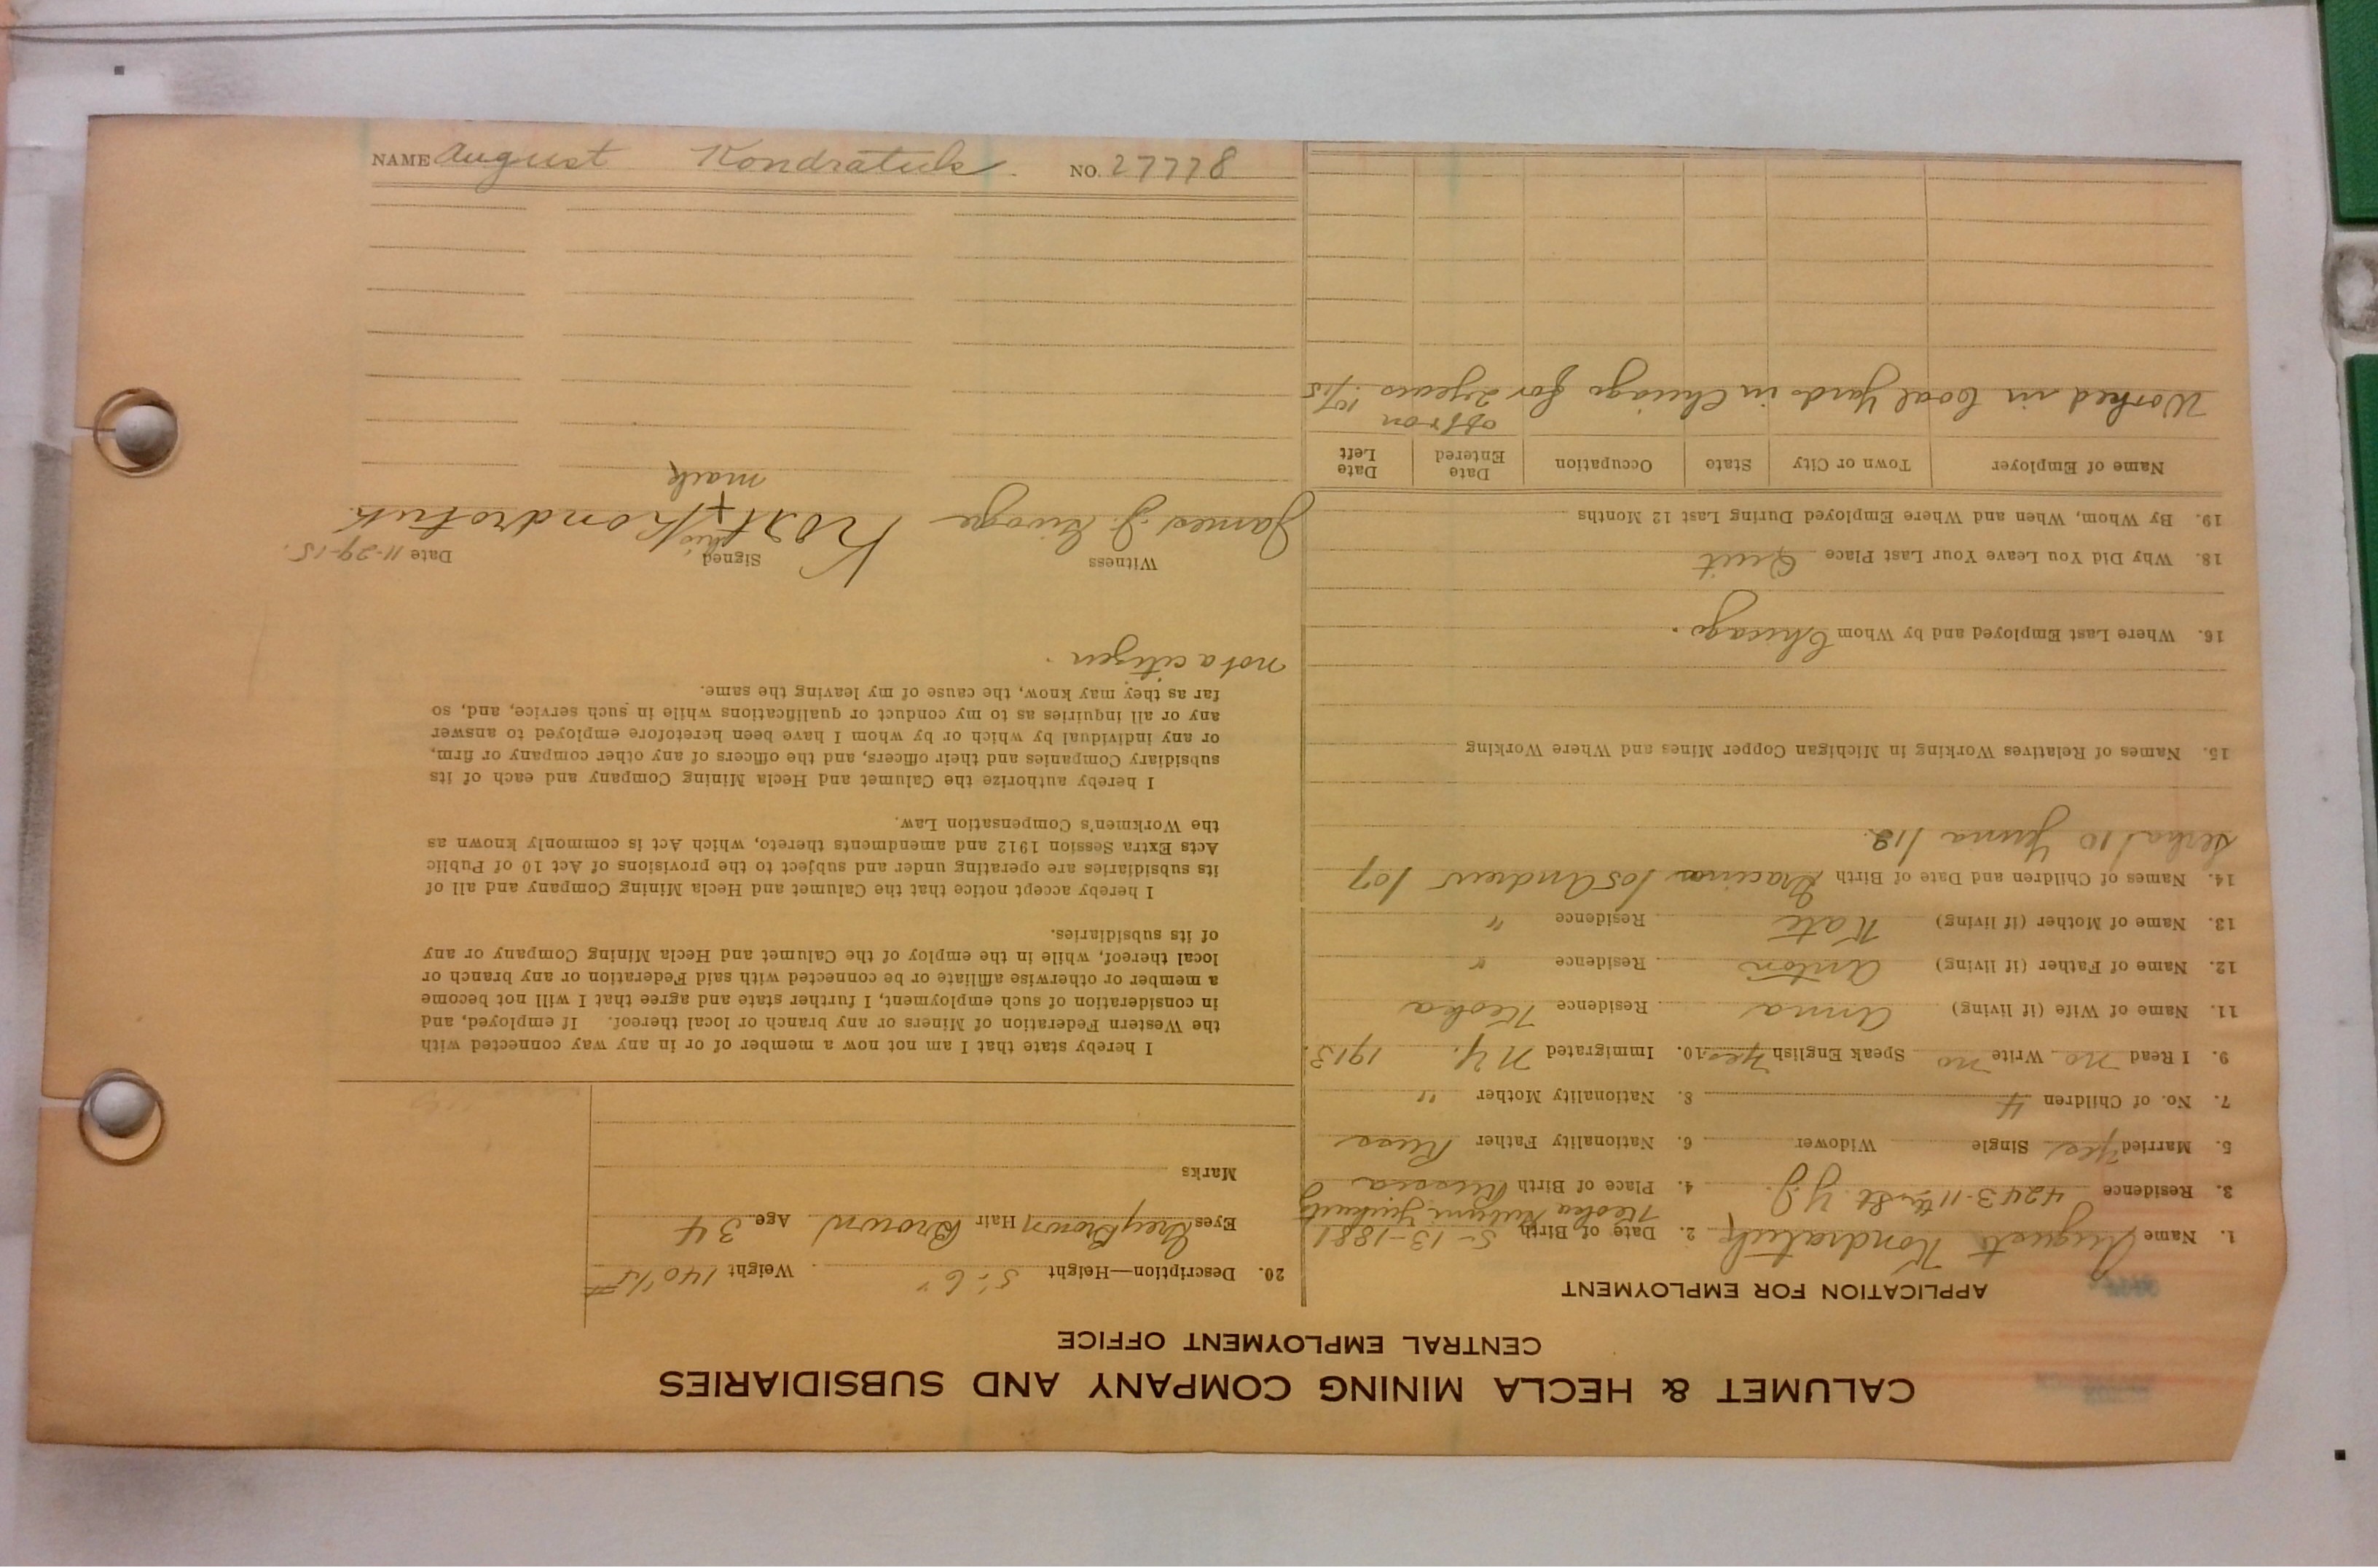 CALUMET & HECLA MINING COMPANY AND SUBSIDIARIES
CENTRAL EMPLOYMENT OFFICE
APPLICATION FOR EMPLOYMENT
1. Name August Kondratuk 2. Date of Birth 5-13-1881
3. Residence 4243-11th St. Y.J. 4. Place of Birth Russia
5. Married yes Single Widower 6. Nationality Father Russ
7. No. of Children 4 8. Nationality Mother "
9. I Read no Write no Speak English yes 10. Immigrated N.Y. 1913.
11. Name of Wife (if living) Anna Residence
12. Name of Father (if living) Anton Residence "
13. Name of Mother (if living) Kate Residence "
14. Names of Children and Date of Birth 105 Andrew 107
110 112
15. Names of Relatives Working in Michigan Copper Mines and Where Working
16. Where Last Employed and by Whom Chicago.
18. Why Did You Leave Your Last Place Quit
19. By Whom, When and Where Employed During Last 12 Months
Name of Employer Town or City State Occupation Date Entered Date Left
off & on
Worked in Coal Yards in Chicago for 2 years 10/15
20. Description—Height 5'-6" Weight 140 1/2 #
Eyes Grey Brown Hair Brown Age 34
Marks
I hereby state that I am not now a member of or in any way connected with
the Western Federation of Miners or any branch or local thereof. If employed, and
in consideration of such employment, I further state and agree that I will not become
a member or otherwise affiliate or be connected with said Federation or any branch or
local thereof, while in the employ of the Calumet and Hecla Mining Company or any
of its subsidiaries.
I hereby accept notice that the Calumet and Hecla Mining Company and all of
its subsidiaries are operating under and subject to the provisions of Act 10 of Public
Acts Extra Session 1912 and amendments thereto, which Act is commonly known as
the Workmen's Compensation Law.
I hereby authorize the Calumet and Hecla Mining Company and each of its
subsidiary Companies and their officers, and the officers of any other company or firm,
or any individual by which or by whom I have been heretofore employed to answer
any or all inquiries as to my conduct or qualifications while in such service, and, so
far as they may know, the cause of my leaving the same.
not a citizen.
Witness Signed Date 11-29-15.
James J. his Kost + Kondrotuk
mark
NAME August Kondratuk. NO. 27778